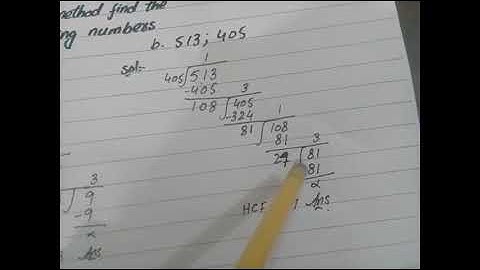 method find the
ing numbers
b. 513; 405
Sol:-
1
405 513
-405 3
108 405
-324 1
81 108
81 3
27 81
81
x
HCF 1 Ans.
3
9
-9
x
Ans